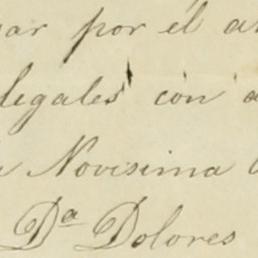 por él
legales con
Novisima
Dª Dolores